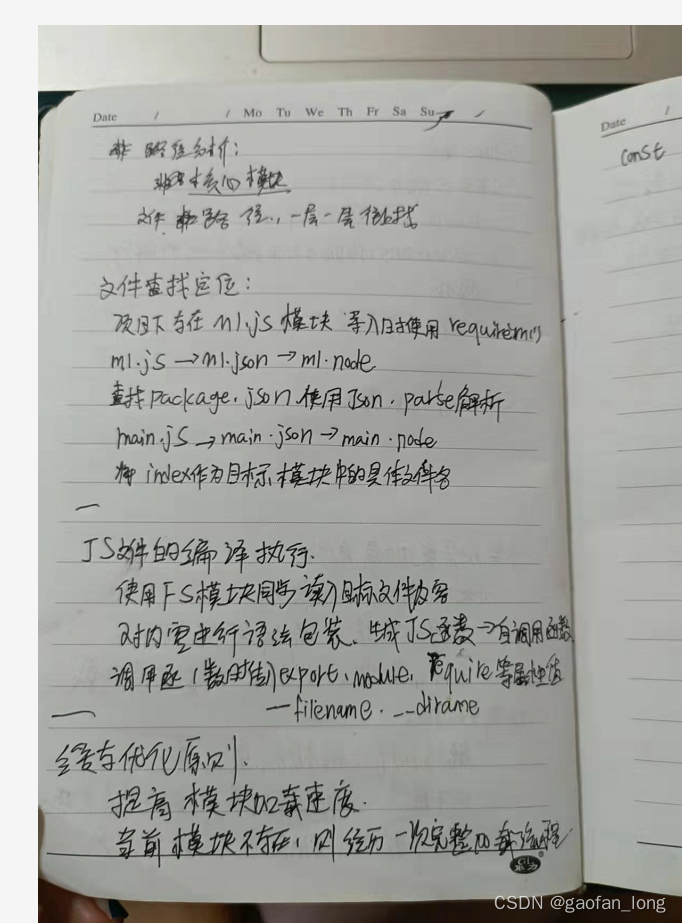 Date / / Mo Tu We Th Fr Sa Su
Date /
const
路径分析:
核心模块
文件 路径,一层一层往上找
文件查找定位:
项目下存在 m1.js 模块 导入时使用 require(m1)
m1.js → m1.json → m1.node
查找package.json,使用Json.parse解析
main.js → main.json → main.node
将 index作为目标模块中的具体文件名
JS文件的编译执行.
使用FS模块同步读入目标文件内容
对内容进行语法包装、生成JS函数→自调用函数
调用函数时传入export、module、require等属性值
__filename. __dirame
缓存优化原则.
提高模块加载速度.
当前模块不存在,则经历一次完整加载流程
CSDN @gaofan_long